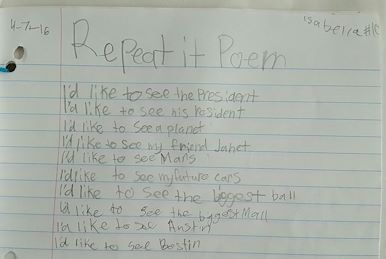 4-7-16
isabella #10
Repeat it Poem
I'd like to see the President
I'd like to see his Resident
I'd like to see a planet
I'd like to see my friend Janet
I'd like to see Mars
I'd like to see my future cars
I'd like to see the biggest ball
I'd like to see the biggest Mall
I'd like to see Austin
I'd like to see Bostin